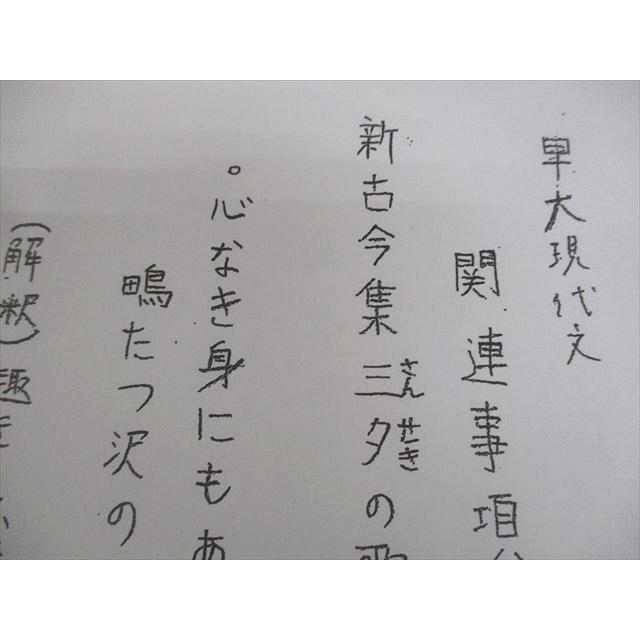 早大現代文
関連事項
新古今集三夕の歌
さんせき
。心なき身にもあ
鴫たつ沢の
(解釈)趣を